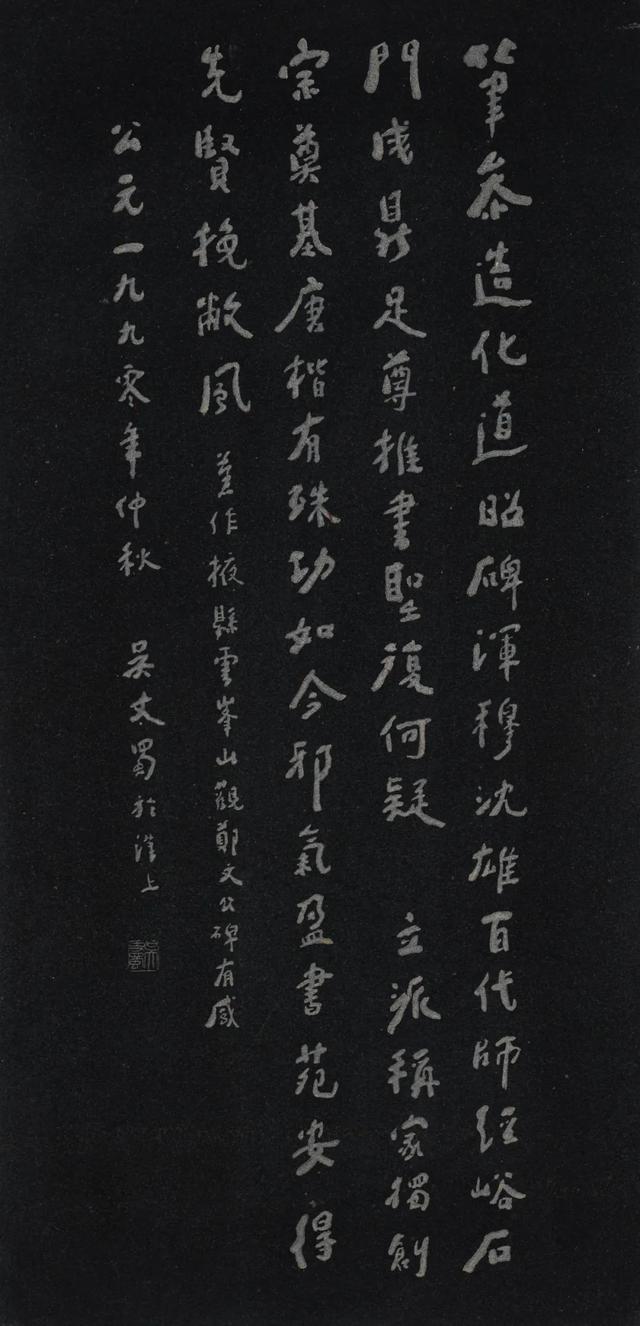 筆參造化道昭碑渾穆沈雄百代師經峪石
門成鼎足尊推書聖復何疑 立派稱家獨創
宗奠基唐楷有殊功如今邪氣盈書苑安得
先賢挽敝風 舊作掖縣雲峯山觀鄭文公碑有感
公元一九九零年仲秋 吴丈蜀於漢上